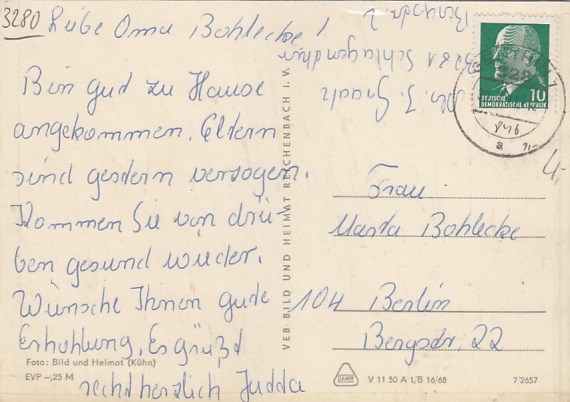 3280
Liebe Oma Bohlecke!
Bin gut zu Hause
angekommen. Eltern
sind gestern verzogen.
Kommen Sie von drü-
ben gesund wieder.
Wünsche Ihnen gute
Erhohlung. Es grüßt
recht herzlich Jutta
Foto: Bild und Heimat (Kühn)
EVP –,25 M
VEB BILD UND HEIMAT REICHENBACH I. V.
10
DEUTSCHE
DEMOKRATISCHE REPUBLIK
a
4,-
Frau
Marta Bohlecke
104 Berlin
Bergstr. 22
V 11 50 A 1/B 16/68
7/2657